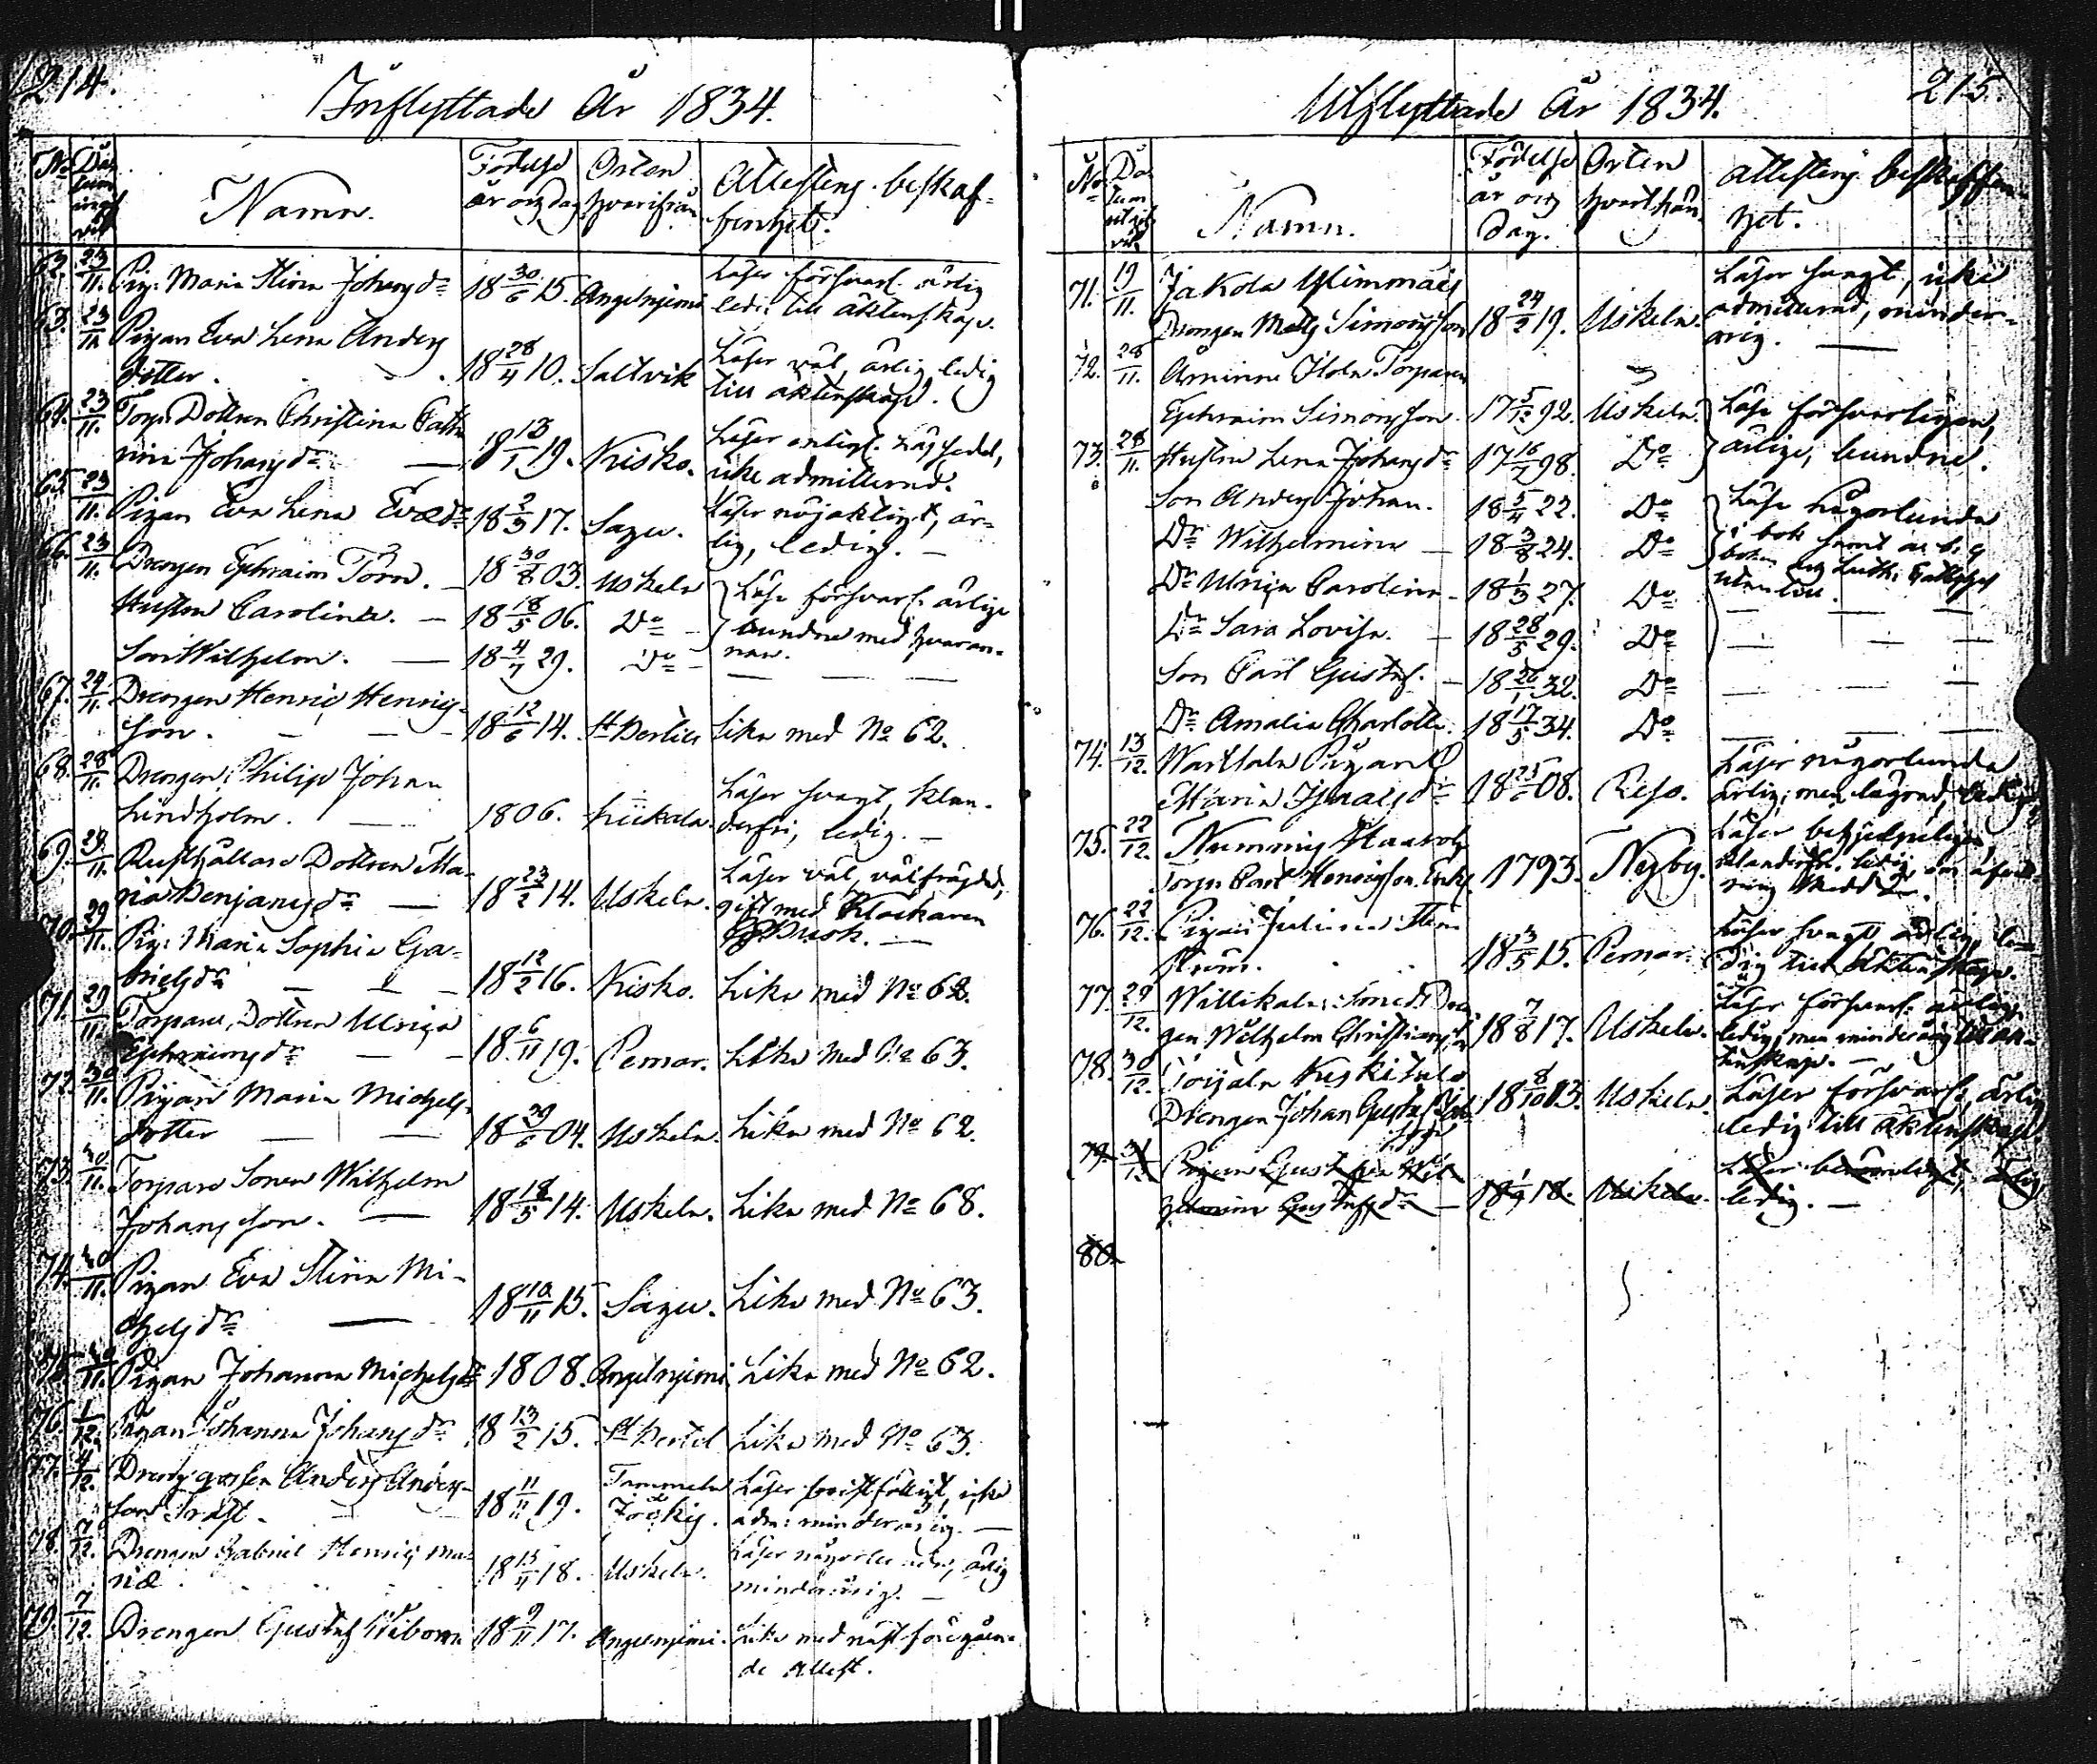 214.
Inflyttade År 1834.
No Datum
Namn.
Födelse år och dag
Orten hvarifrån
Attestens beskaffenhet.
62. 23/11. Pig: Maria Stina Johansdr 18 30/6 15. Angelniemi Läser försvarl. ärlig
ledi: till äktenskap.
63. 23/11. Pigan Eva Lena Anders
dotter. 18 28/4 10. Saltvik Läser väl, ärlig ledig
till äktenskap.
64. 23/11. Torp: Dottren Christina Catha
rina Johansdr 18 13/1 19. Kisko. Läser
icke admitterad.
65. 23/11. Pigan Eva Lena 18 2/3 17. Sagu. Läser nöjaktigt, är-
lig, ledig.
66. 23/11. Drengen Ephraim Törn. 18 30/8 03. Uskela Läse försvarl. ärlige
Hustru Carolina. 18 18/5 06. Do bundne med hvaran-
nan.
Son Wilhelm. 18 4/4 29. Do
67. 24/11. Drengen Henric Henrics-
son. 18 12/6 14. St Bertils Lika med No 62.
68. 28/11. Drengen Philip Johan
Lindholm. 1806. Läser svagt, klan-
derfri, ledig.
69. 29/11. Rusthållare Dottren Ma-
ria Benjamsdr 18 23/2 14. Uskela. Läser väl, välfrägdad,
gift med Klockaren
70. 29/11. Pig: Maria Sophia Ga-
brielsdr 18 12/2 16. Kisko. Lika med No 62.
71. 29/11. Torpare Dottren Ulrica
Ephraimsdr 18 6/11 19. Pemar. Lika med No 63.
72. 30/11. Pigan Maria Michels-
dotter 18 29/6 04. Uskela. Lika med No 62.
73. 30/11. Torpare Sonen Wilhelm
Johansson. 18 18/5 14. Uskela. Lika med No 68.
74. 30/11. Pigan Eva Stina Mi-
chelsdr 18 10/11 15. Sagu. Lika med No 63.
75. 30/11. Pigan Johanna Michelsdr 1808. Angelniemi Lika med No 62.
76. 1/12. Pigan Johanna Johansdr 18 13/2 15. St Bertel Lika med No 63.
77. 4/12. Anders Anders-
son 18 11/11 19. Tammela
Jockis. Läser bristfälligt, icke
adm: minderårig.
78. 7/12. Drengen Gabriel Henrics 18 15/11 18. Uskela. Läser någorlunda, ärlig
minderårig.
79. 7/12. Drengen Gustaf Wibom 18 9/11 17. Angelniemi. Lika med näst föregåen-
de attest.
Utflyttade År 1834.
215.
No Datum
Namn.
Födelse år och dag.
Orten hvarthän
Attestens beskaffen-
het.
71. 19/11. Jakola
Drengen Matts Simonsson 18 24/2 19. Uskela. Läser svagt, icke
admitterad, minder-
årig.
72. 28/11. Åminne Torparen
Ephraim Simonsson. 17 5/12 92. Uskela. Läse försvarligen,
73. 28/11. Hustru Lena Johansdr 17 16/2 98. Do ärlige, bundne.
Son Anders Johan. 18 5/4 22. Do Läse någorlunda
Dr Wilhelmina 18 3/8 24. Do i bok samt
Dr Ulrica Carolina 18 1/3 27. Do utantill.
Dr Sara Lovisa. 18 28/5 29. Do
Son Carl Gustaf. 18 26/1 32. Do
Dr Amalia Charlotta. 18 17/5 34. Do
74. 13/12. Warttala Pigan
Maria Isaacsdr 18 25/6 08. Reso. Läser någorlunda
ärlig, men lägrad, ledig
75. 22/12. Nummis
Torp: Carl Henricsson Enka 1793. Nyby.
76. 22/12. Pigan Juliana
18 3/5 15. Pemar. Läser svagt ärlig, le-
dig till äktenskap.
77. 29/12. Drän
gen Wilhelm Christiansson 18 7/8 17. Uskela. Läser försvarl. ärlig,
ledig, men minderårig till äk-
tenskap.
78. 30/12. Toijala Keskitalo
Drengen Johan Gustaf 18 8/10 13. Uskela. Läser försvarl: ärlig
ledig till äktenskap.
79. 31/12. Pigan Gustava Wil
helmina Gustafsdr 18 1/9 18. Uskela. Läser ärlig
ledig.
80.